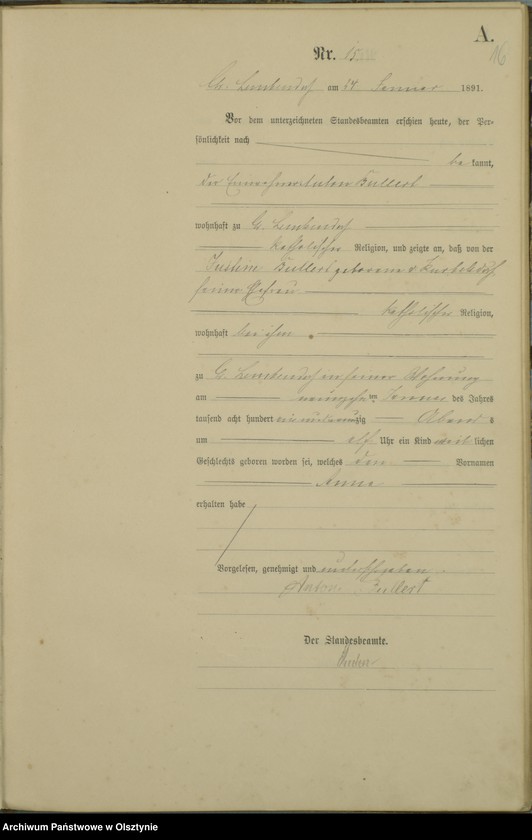 A.
16
Nr. 15
Gr. Lemkendorf am 24 Januar 1891.
Vor dem unterzeichneten Standesbeamten erschien heute, der Per-
sönlichkeit nach
be kannt,
der Einwohner Anton Bullert
wohnhaft zu G. Lemkendorf
katholischer Religion, und zeigte an, daß von der
Justine Bullert geborene
seiner Ehefrau
katholischer Religion,
wohnhaft bei ihm
zu G. Lemkendorf in seiner Wohnung
am neunzehn ten Januar des Jahres
tausend acht hundert ein und neunzig Abends
um elf Uhr ein Kind weib lichen
Geschlechts geboren worden sei, welches den Vornamen
Anna
erhalten habe
Vorgelesen, genehmigt und unterschrieben
Anton Bullert
Der Standesbeamte.
Archiwum Państwowe w Olsztynie